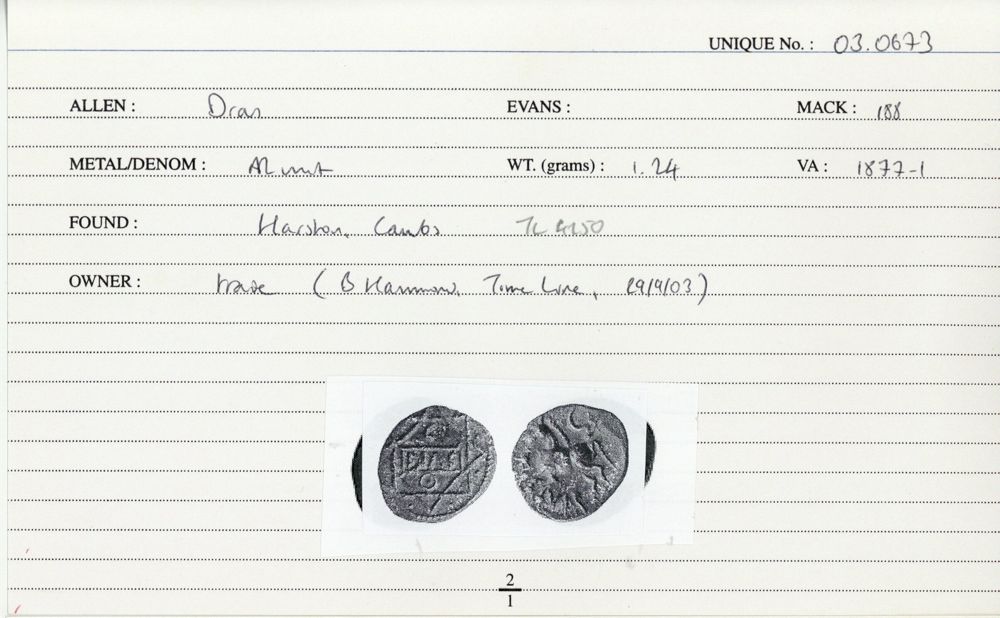 UNIQUE No. : 03.0673
ALLEN : Dras EVANS : MACK : 188
METAL/DENOM : AR unit WT. (grams) : 1.24 VA : 1877-1
FOUND : Harston, Cambs TL 4250
OWNER : trade ( B Hammond, Time Line, 29/9/03 )
2
1